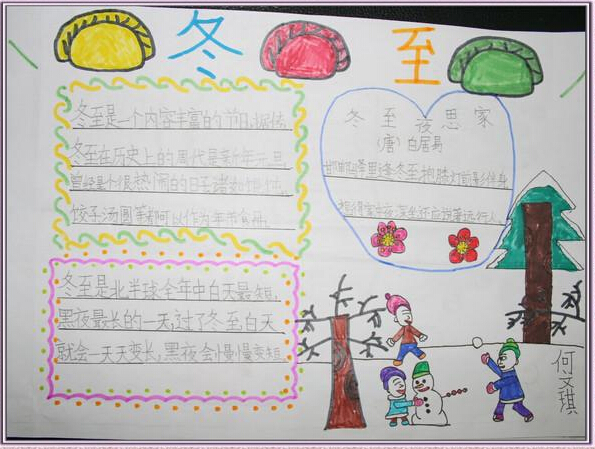 冬至
冬至是一个内容丰富的节日,据传,
冬至在历史上的周代是新年元旦,
曾经是个很热闹的日子,诸如
饺子汤圆等都可以作为年节食品。
冬至夜思家
(唐)白居易
邯郸驿里逢冬至,抱膝灯前影伴身。
想得家中夜深坐,还应说着远行人。
冬至是北半球全年中白天最短,
黑夜最长的一天,过了冬至,白天
就会一天天变长,黑夜会慢慢变短。
何文琪